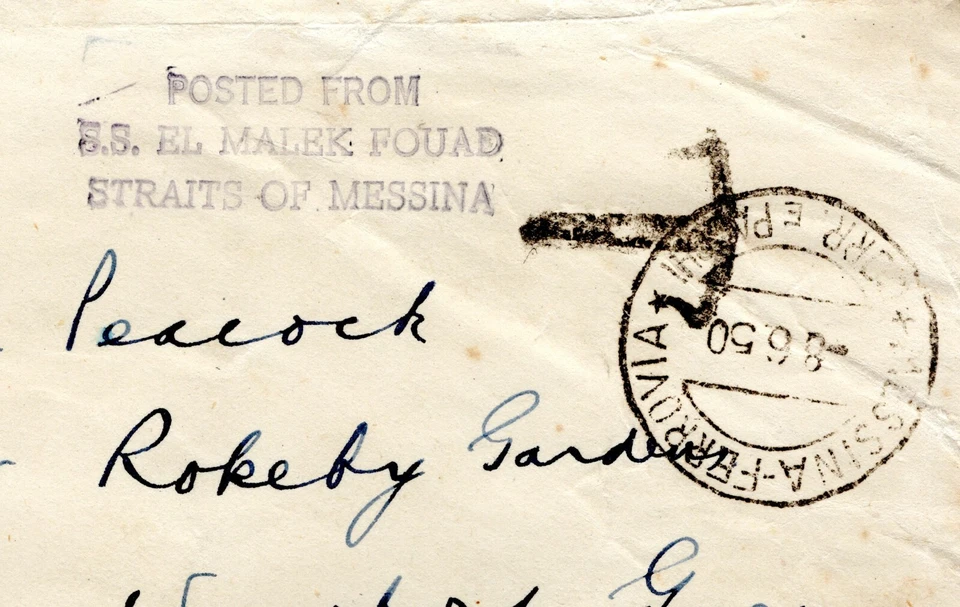 POSTED FROM
S.S. EL MALEK FOUAD
STRAITS OF MESSINA
Peacock
Rokeby Gardens
MESSINA-FERROVIA
-8 6 50